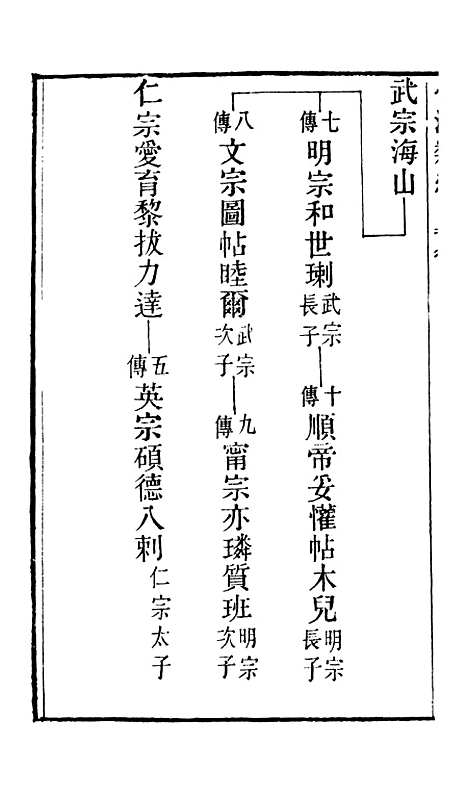 武宗海山
七傳明宗和世㻋武宗長子
十傳順帝妥懽帖木兒明宗長子
八傳文宗圖帖睦爾武宗次子
九傳甯宗亦璘質班明宗次子
仁宗愛育黎拔力達
五傳英宗碩德八剌仁宗太子